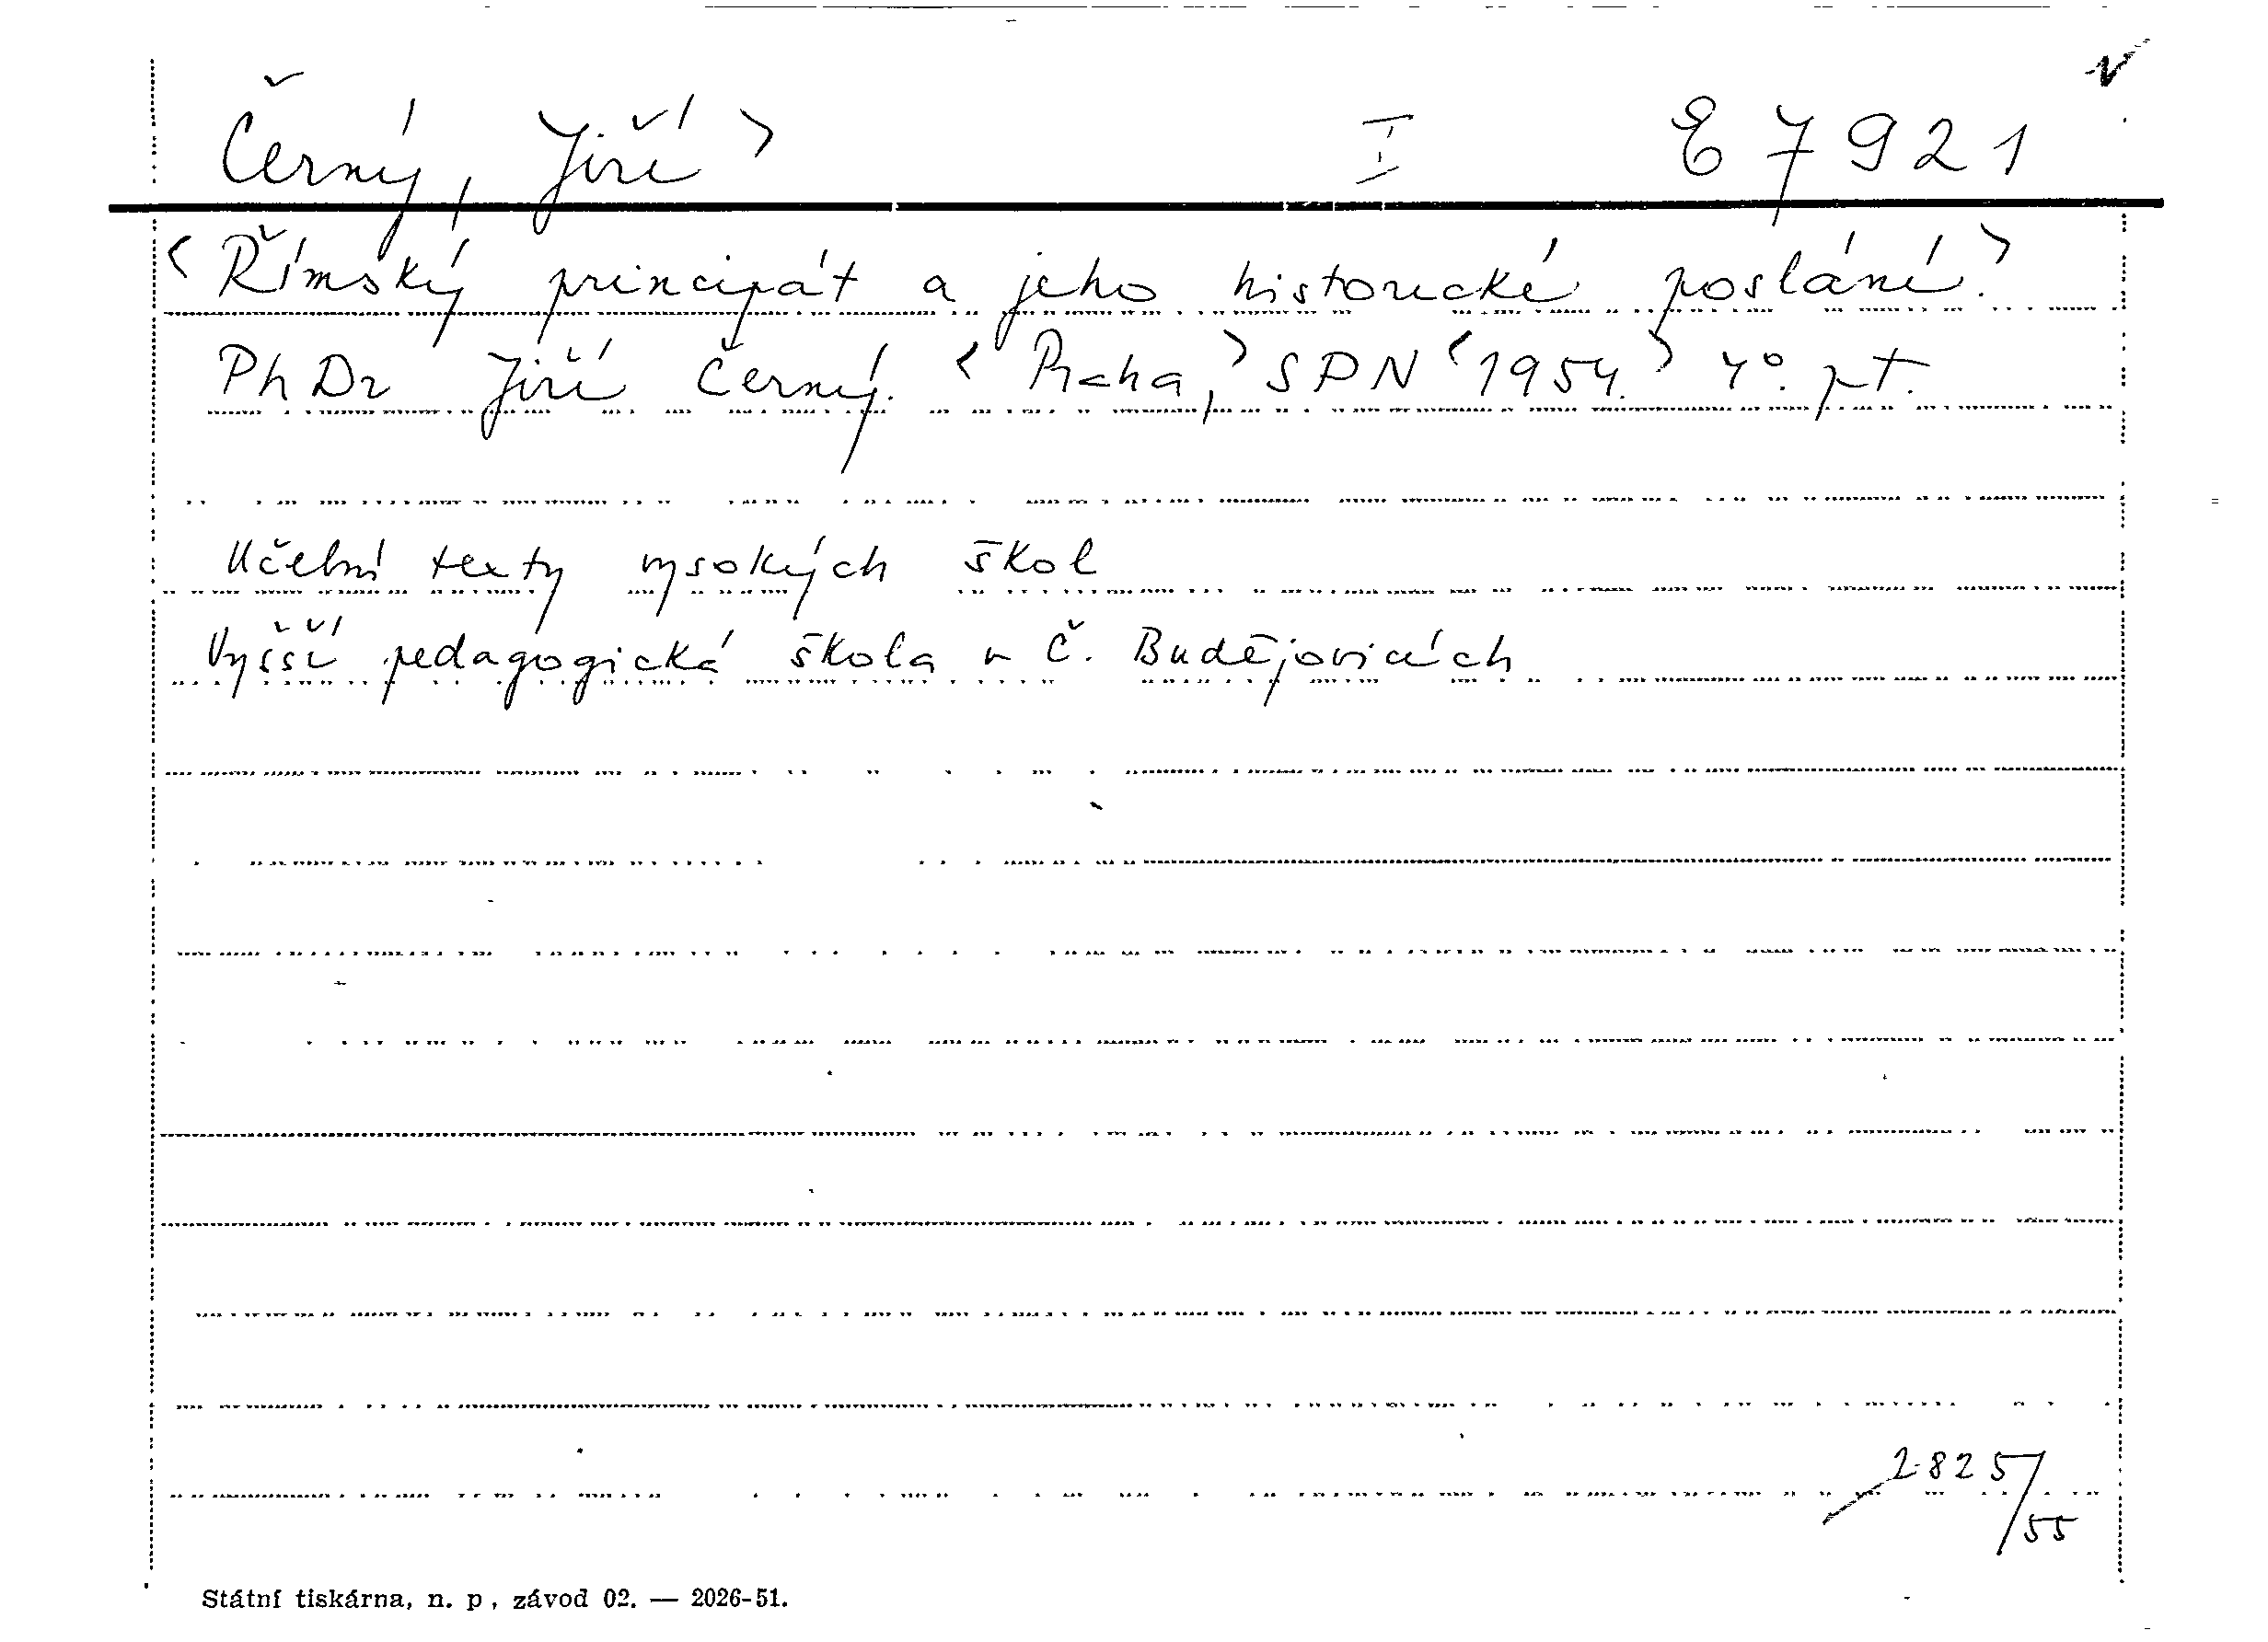 Černý, Jiří > I E 7921
< Římský principát a jeho historické poslání. >
PhDr Jiří Černý. < Praha, > SPN < 1954. > 4°. pt.
Učební texty vysokých škol
Vyšší pedagogická škola v Č. Budějovicích
2825/55
Státní tiskárna, n. p., závod 02. — 2026-51.